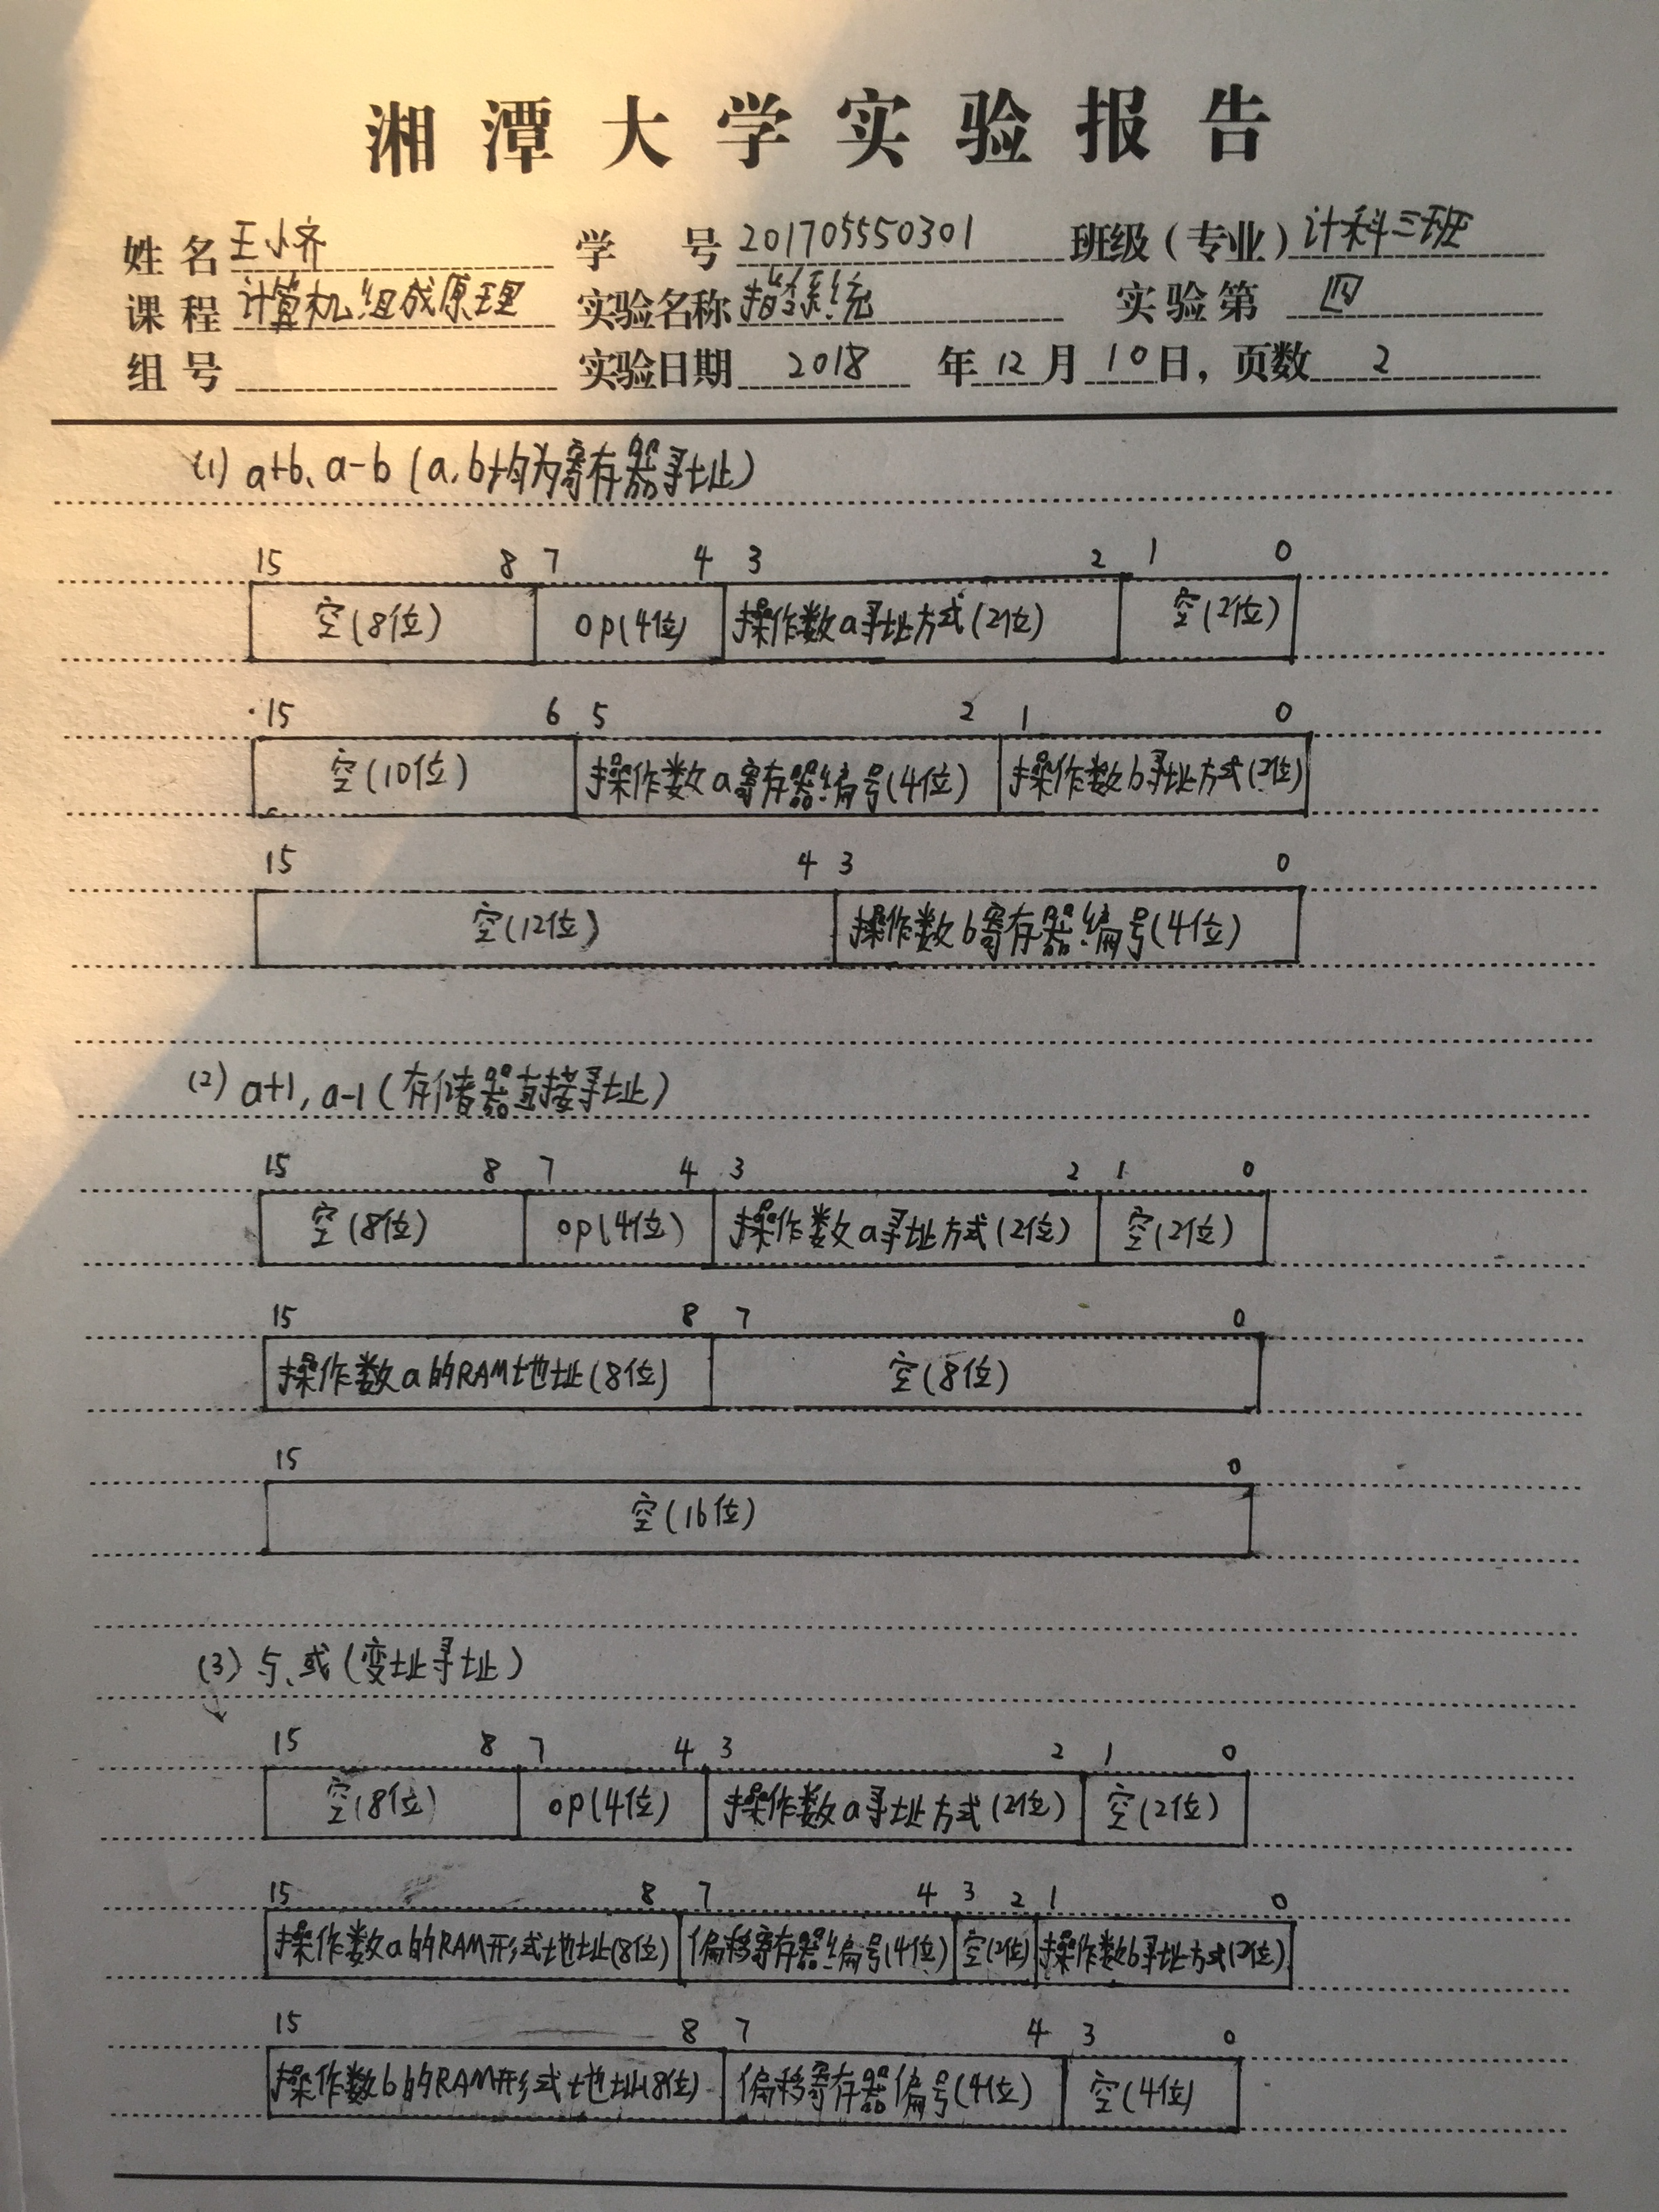 湘潭大学实验报告
姓名 王小齐 学号 201705550301 班级(专业) 计科三班
课程 计算机组成原理 实验名称 指令系统 实验第 四
组号 实验日期 2018 年 12 月 10 日, 页数 2
(1) a+b、a-b (a,b均为寄存器寻址)
15 8 7 4 3 2 1 0
空(8位) op(4位) 操作数a寻址方式(2位) 空(2位)
15 6 5 2 1 0
空(10位) 操作数a寄存器编号(4位) 操作数b寻址方式(2位)
15 4 3 0
空(12位) 操作数b寄存器编号(4位)
(2) a+1, a-1 (存储器直接寻址)
15 8 7 4 3 2 1 0
空(8位) op(4位) 操作数a寻址方式(2位) 空(2位)
15 8 7 0
操作数a的RAM地址(8位) 空(8位)
15 0
空(16位)
(3) 与、或(变址寻址)
15 8 7 4 3 2 1 0
空(8位) op(4位) 操作数a寻址方式(2位) 空(2位)
15 8 7 4 3 2 1 0
操作数a的RAM形式地址(8位) 偏移寄存器编号(4位) 空(2位) 操作数b寻址方式(2位)
15 8 7 4 3 0
操作数b的RAM形式地址(8位) 偏移寄存器偏号(4位) 空(4位)